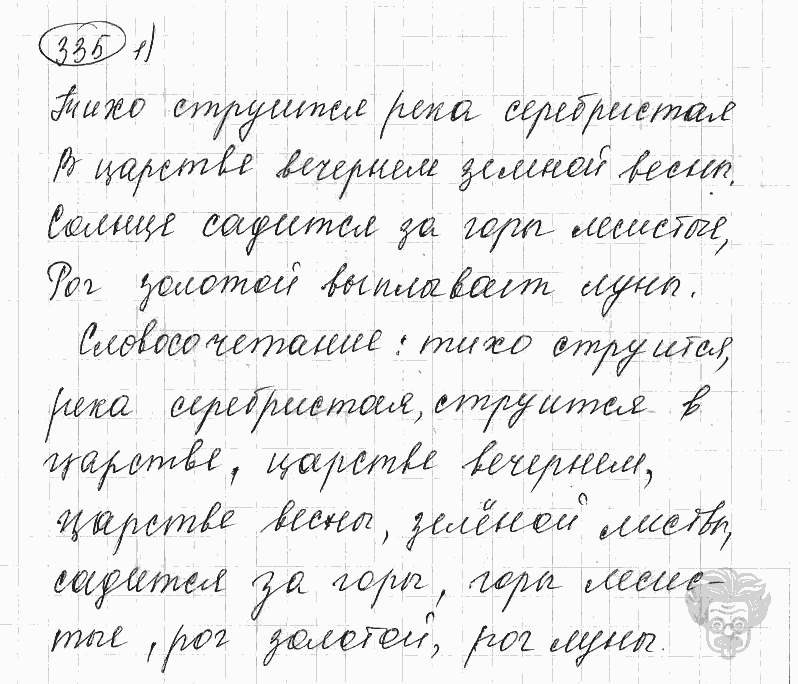 335 1)
Тихо струится река серебристая
В царстве вечернем земной весны.
Солнце садится за горы лесистые,
Рог золотой выплывает луны.
Словосочетание: тихо струится,
река серебристая, струится в
царстве, царстве вечернем,
царстве весны, зелёной листвы,
садится за горы, горы лесис-
тые, рог золотой, рог луны.